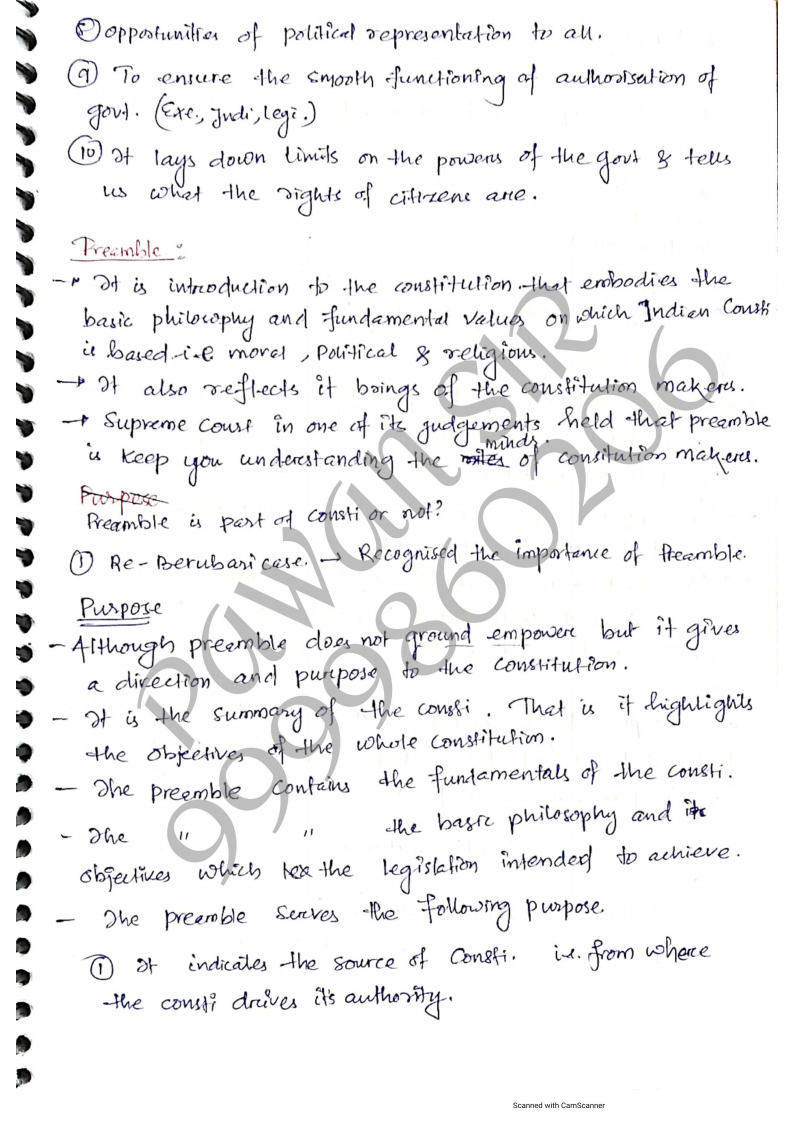 ⑧ Opportunities of political representation to all.
⑨ To ensure the smooth functioning of authorisation of
govt. (Exe., Judi, legi.)
⑩ It lays down limits on the powers of the govt & tells
us what the rights of citizens are.
Preamble :-
→ It is introduction to the constitution that embodies the
basic philosophy and fundamental values on which Indian Consti
is based i.e moral, Political & religious.
→ It also reflects it brings of the constitution makers.
→ Supreme Court in one of its judgements held that preamble
minds.
is keep you understanding the of consitution makers.
Purpose
Preamble is part of consti or not?
① Re-Berubari case. → Recognised the importance of Preamble.
Purpose
- Although preamble does not ground empower but it gives
a direction and purpose to the constitution.
- It is the summary of the consti. That is it highlights
the objectives of the whole constitution.
- The preamble contains the fundamentals of the consti.
- The " " the basic philosophy and its
objectives which the legislation intended to achieve.
- The preamble serves the following purpose.
① It indicates the source of Consti. i.e. from where
the consti drives it's authority.
Pawan Sir
9999860206
Scanned with CamScanner